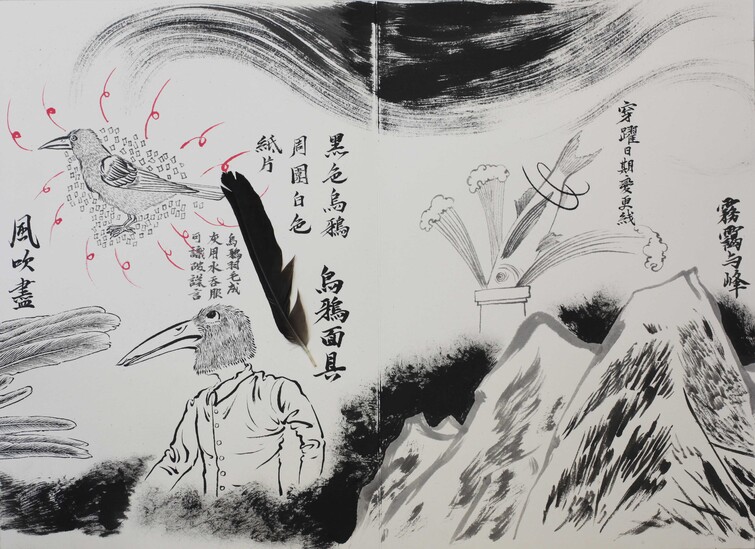 霧靄与峰
穿躍日期變更线
黑色烏鴉
周圍白色
紙片
烏鴉面具
烏鴉羽毛成
灰用水吞服
可識破謊言
風吹盡